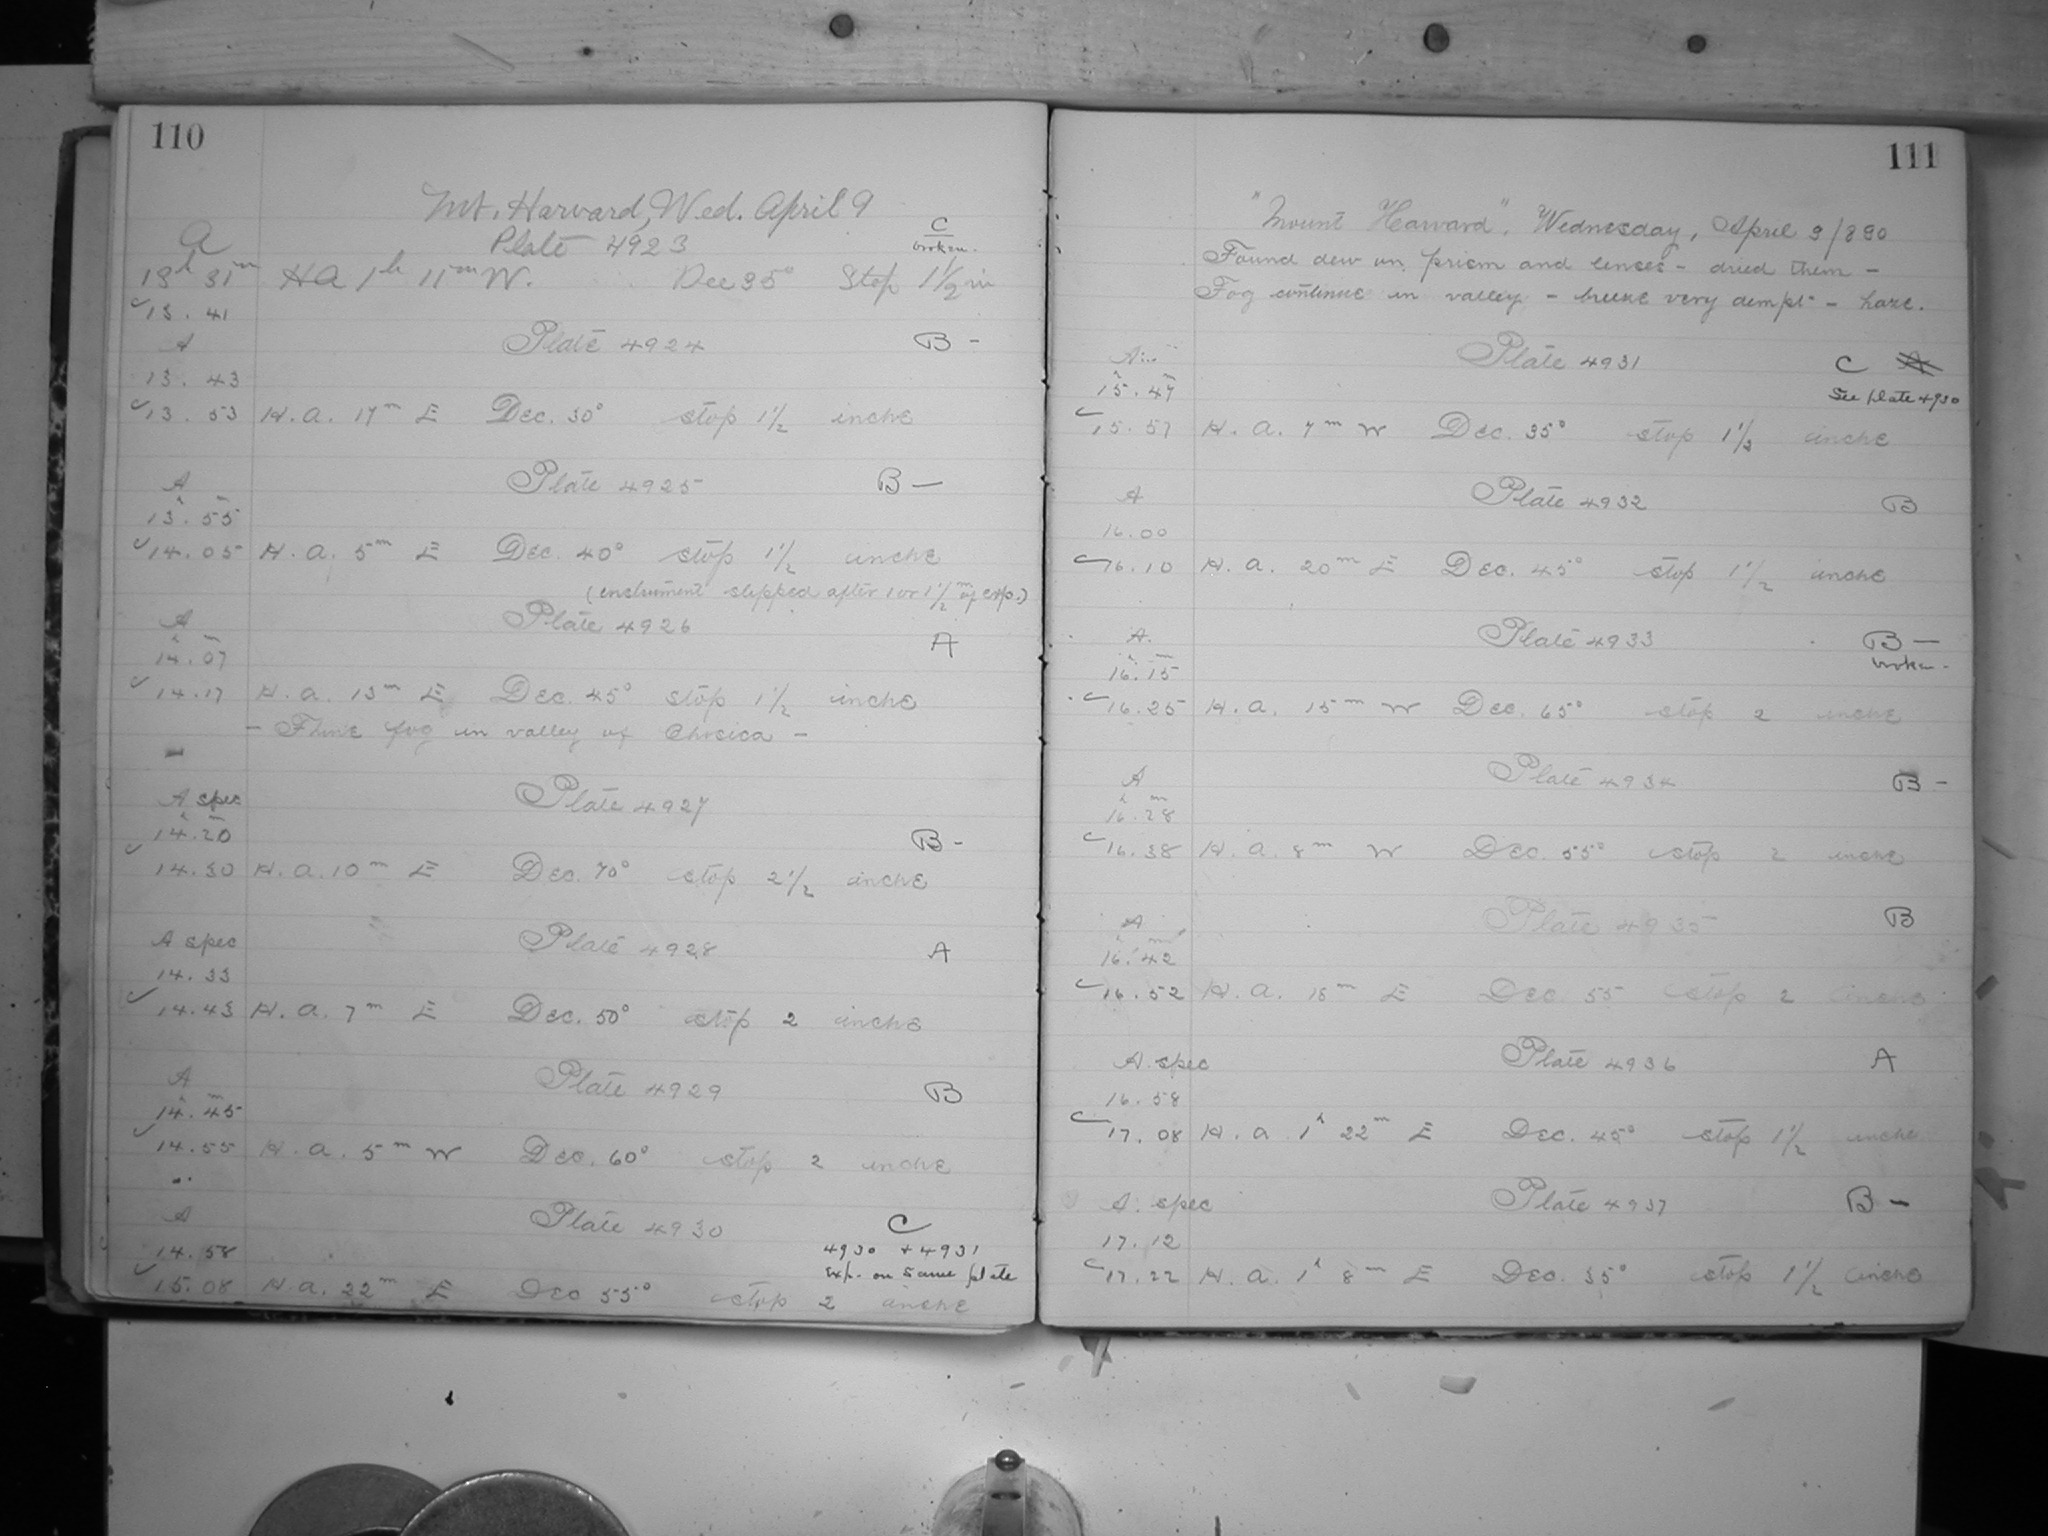 110
Mt. Harvard, Wed. April 9
A Plate 4923 C
broken.
13h 31m HA 1h 11m W. Dec 35° Stop 1 1/2 in
13.41
A Plate 4924 B -
13.43
13.53 H.a. 17m E Dec. 30° stop 1 1/2 inche
A Plate 4925 B -
h m
13.55
14.05 H.a. 5m E Dec. 40° stop 1 1/2 inche
(instrument slipped after 1 or 1 1/2 m of exp.)
A Plate 4926 A
h m
14.07
14.17 H.a. 13m E Dec. 45° stop 1 1/2 inche
- fog in valley of Chosica -
A spec Plate 4927
h m
14.20 B -
14.30 H.a. 10m E Dec. 70° stop 2 1/2 inche
A spec Plate 4928 A
14.33
14.43 H.a. 7m E Dec. 50° stop 2 inche
A Plate 4929 B
h m
14.45
14.55 H.a. 5m W Dec. 60° stop 2 inche
A Plate 4930 C
14.58 4930 + 4931
Exp. on same plate
15.08 H.a. 22m E Dec 55° stop 2 inche
111
"Mount Harvard", Wednesday, April 9/890
Found dew on prism and lenses - dried them -
Fog continue in valley - breeze very - haze.
A Plate 4931 C A
h m
15.47 See plate 4930
15.57 H.a. 7m W Dec. 35° stop 1 1/2 inche
A Plate 4932 B
16.00
16.10 H.a. 20m E Dec. 45° stop 1 1/2 inche
A. Plate 4933 B -
broken.
h m
16.15
16.25 H.a. 15m W Dec. 65° stop 2 inche
A Plate 4934 B -
h m
16.28
16.38 H.a. 8m W Dec. 55° stop 2 inche
A Plate 4935 B
h m
16.42
16.52 H.a. 18m E Dec 55 stop 2 inche
A. spec Plate 4936 A
16.58
17.08 H.a. 1h 22m E Dec. 45° stop 1 1/2 inche
A. spec Plate 4937 B -
17.12
17.22 H.a. 1h 8m E Dec. 35° stop 1 1/2 inche